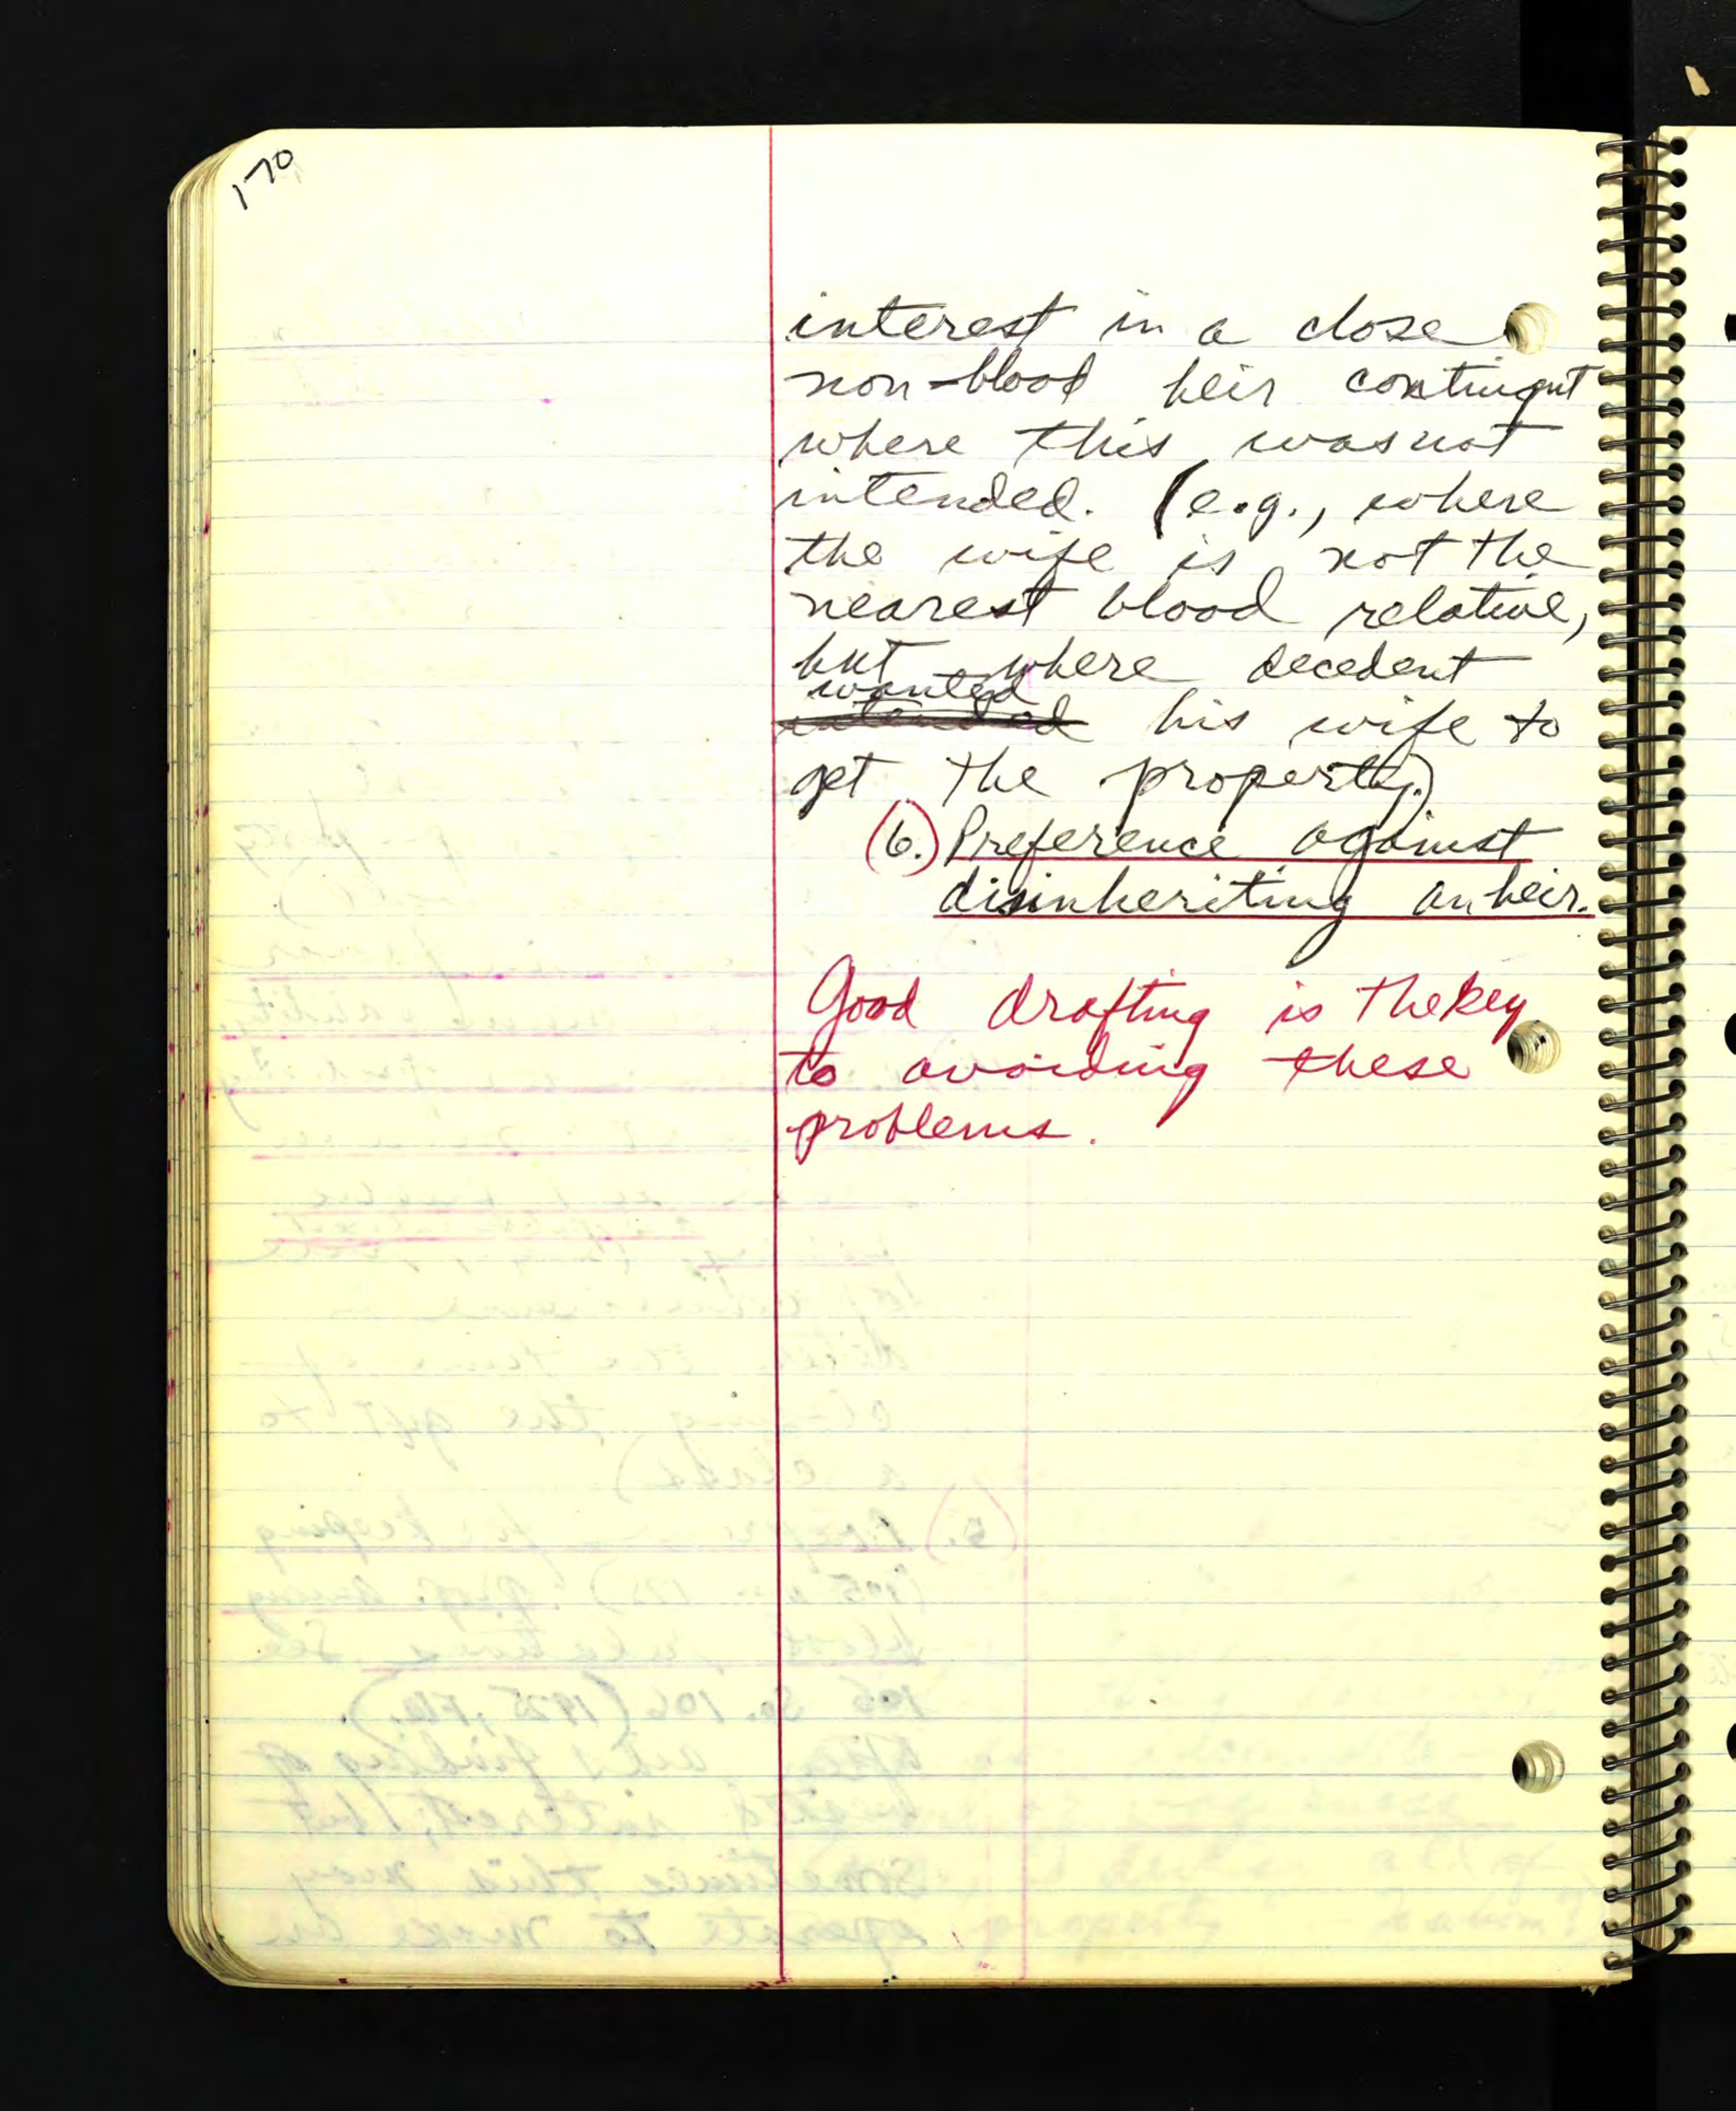 170
interest in a close
non-blood heir contingent
where this was not
intended. (e.g., where
the wife is not the
nearest blood relative,
but where decedent
wanted
intended his wife to
get the property.)
(6.) Preference against
disinheriting an heir.
Good drafting is the key
to avoiding these
problems.